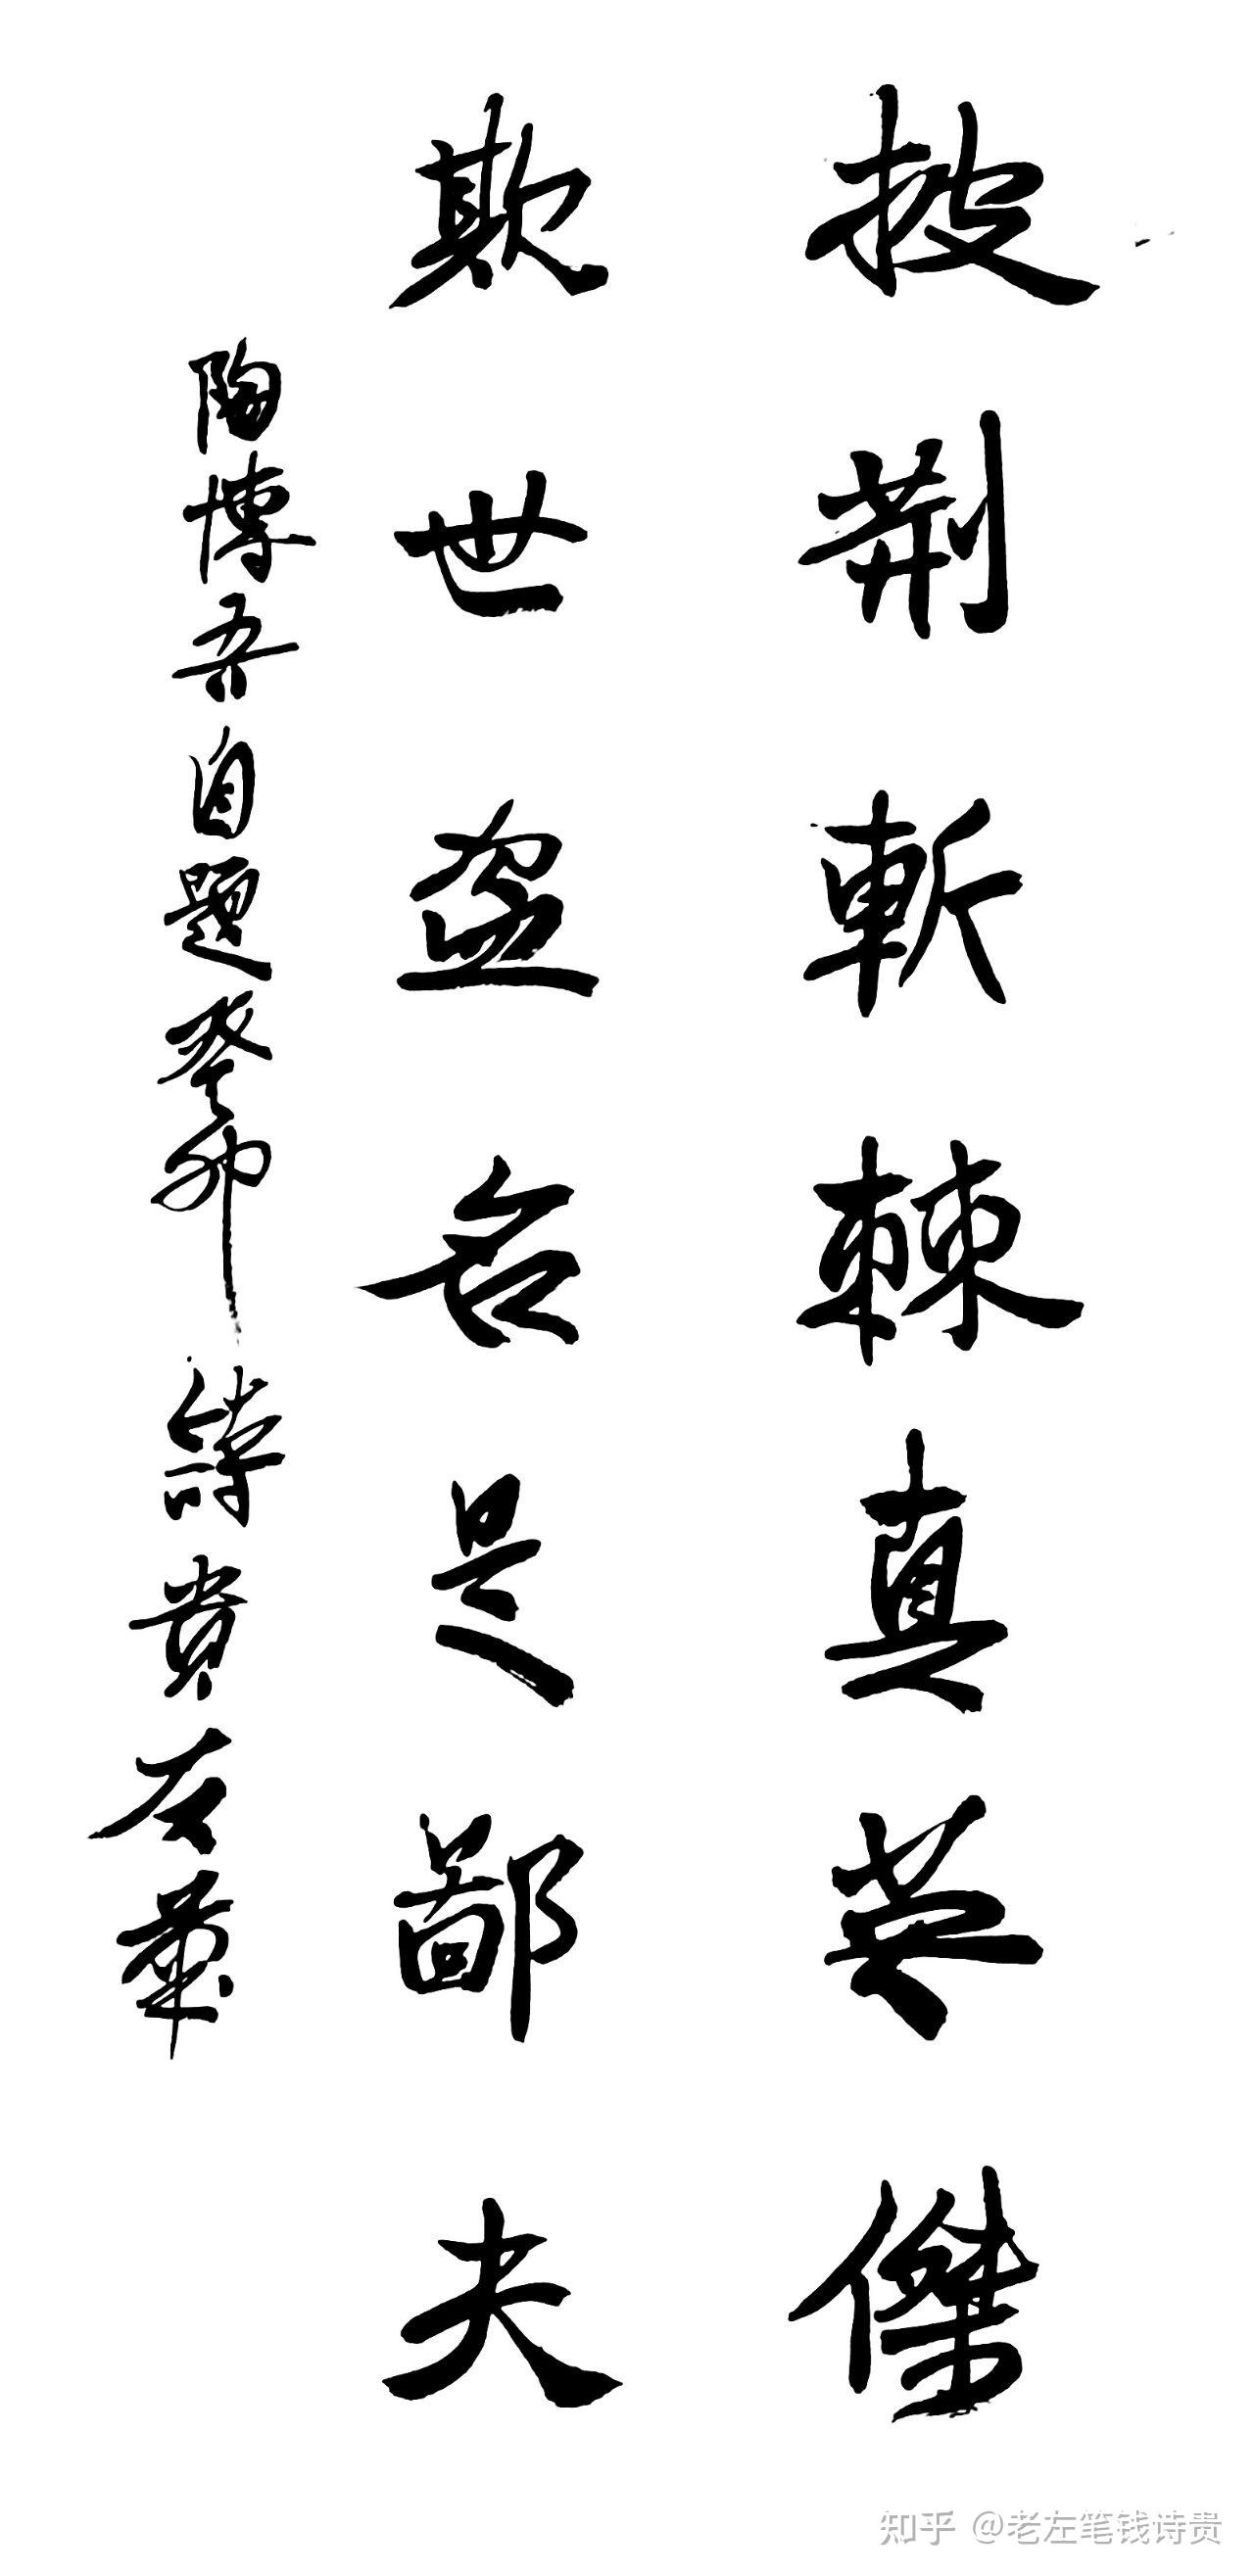 披荆斬棘真英傑
欺世盗名是鄙夫
陶博吾自題癸卯詩貴左筆
知乎 @老左笔钱诗贵